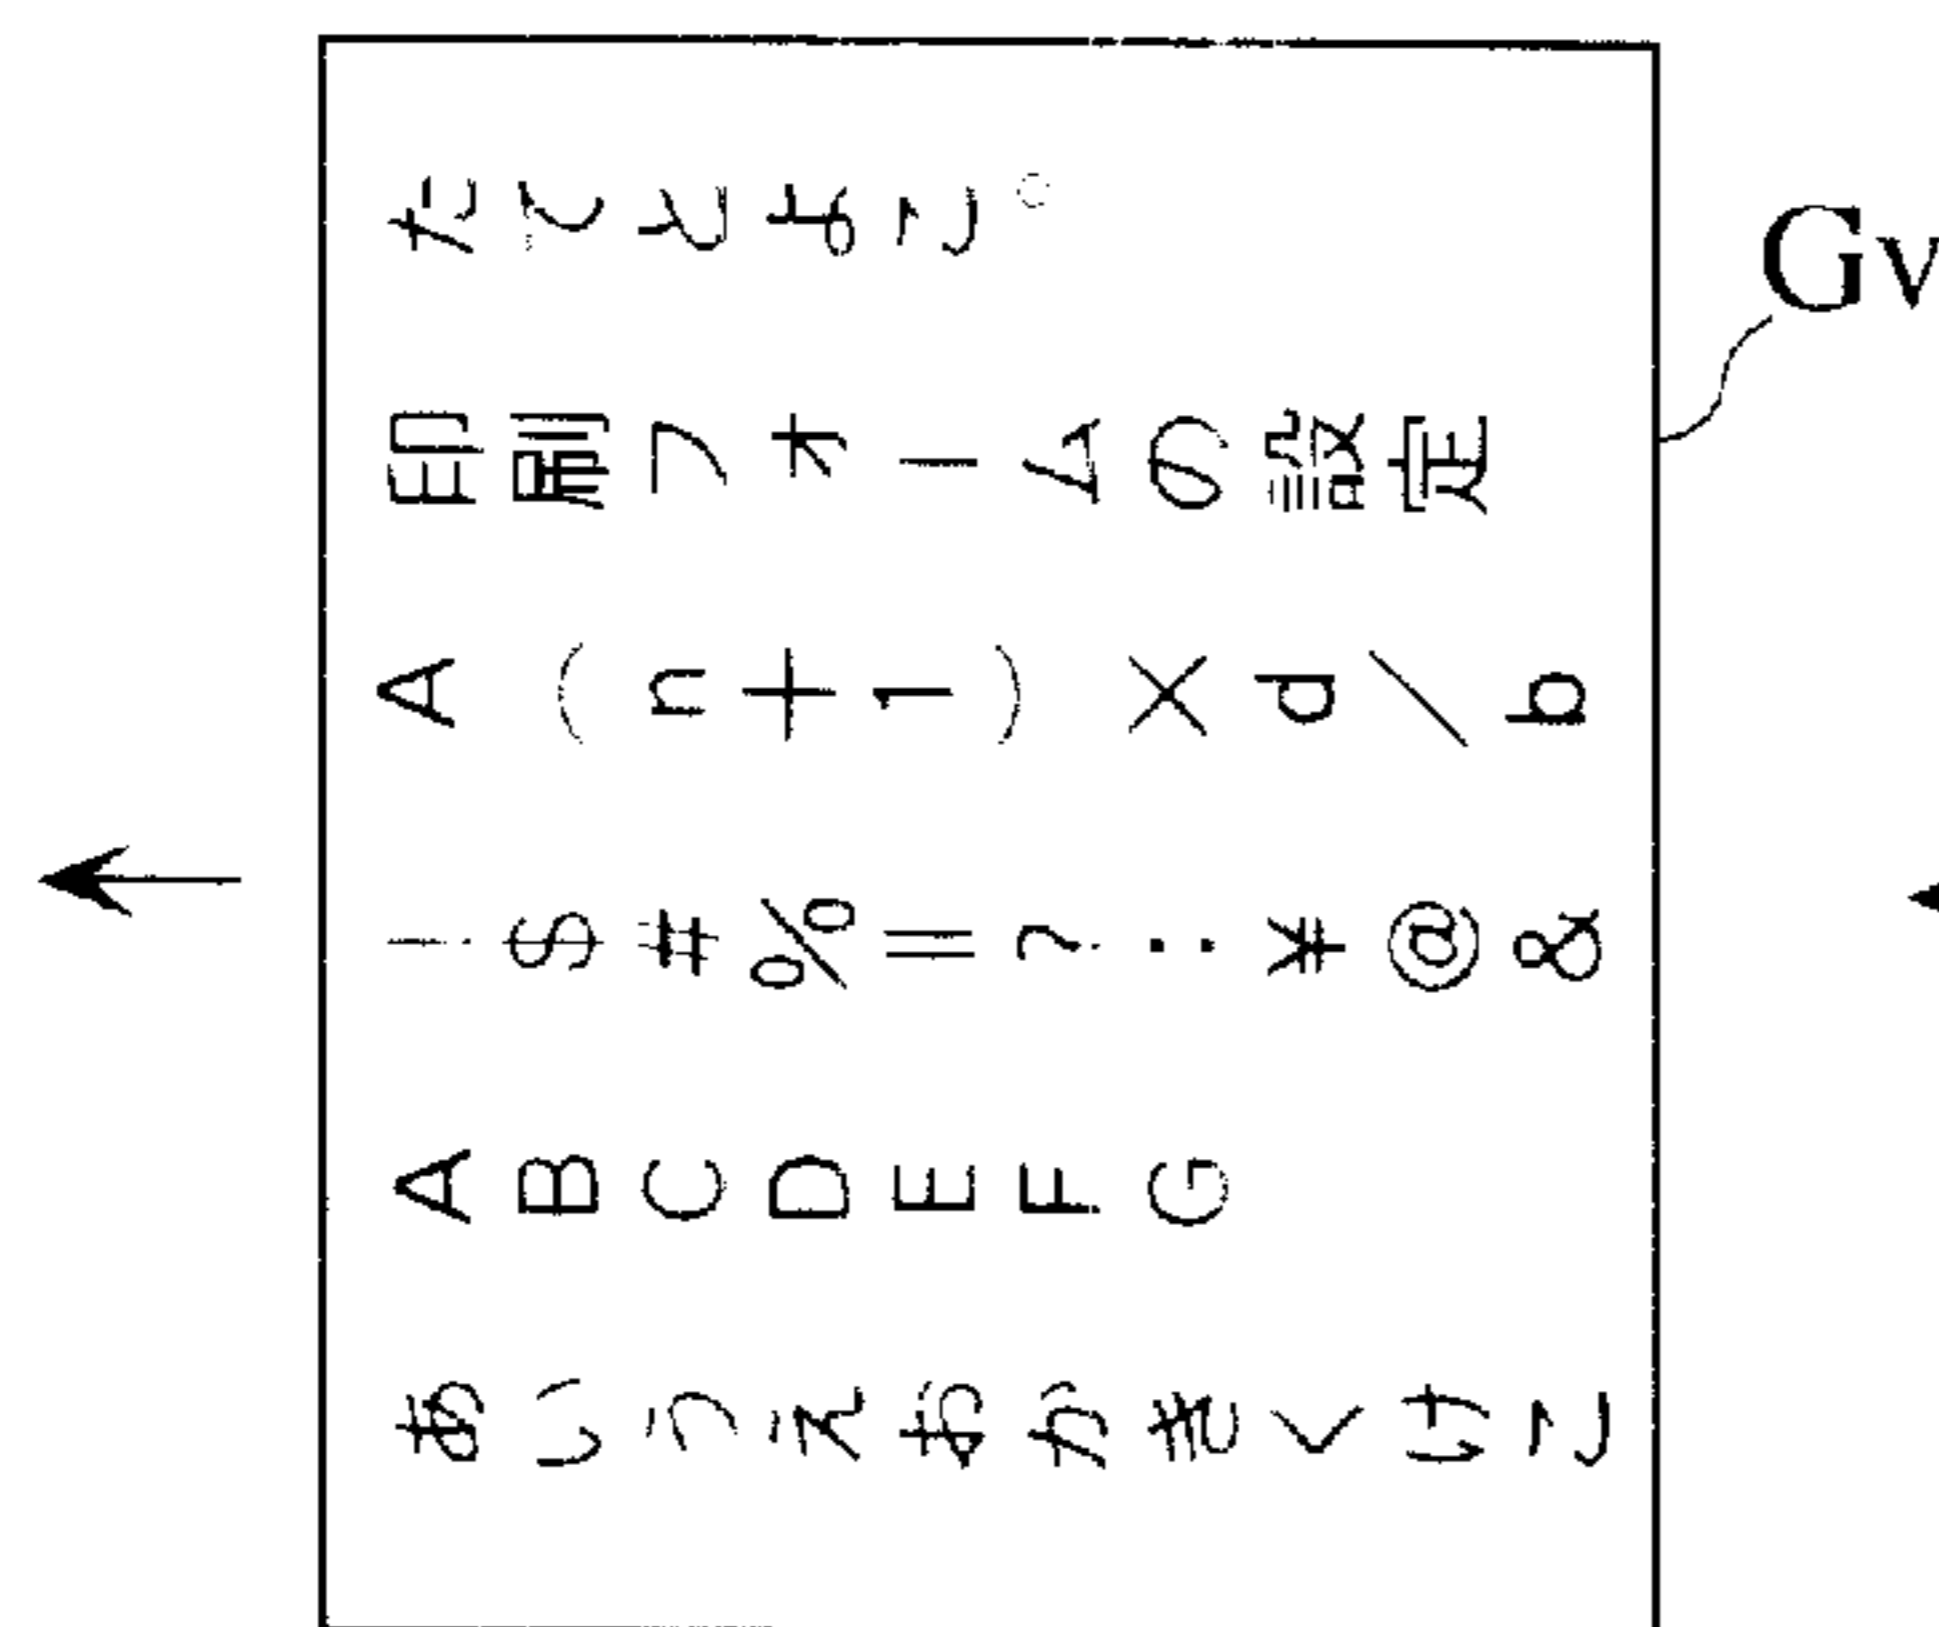 たてとよこ。
印刷フォームの設定
A(n+1)×d/b
!$#%=?:¥@&
ABCDEFG
あいうえおかきくけこ
Gv